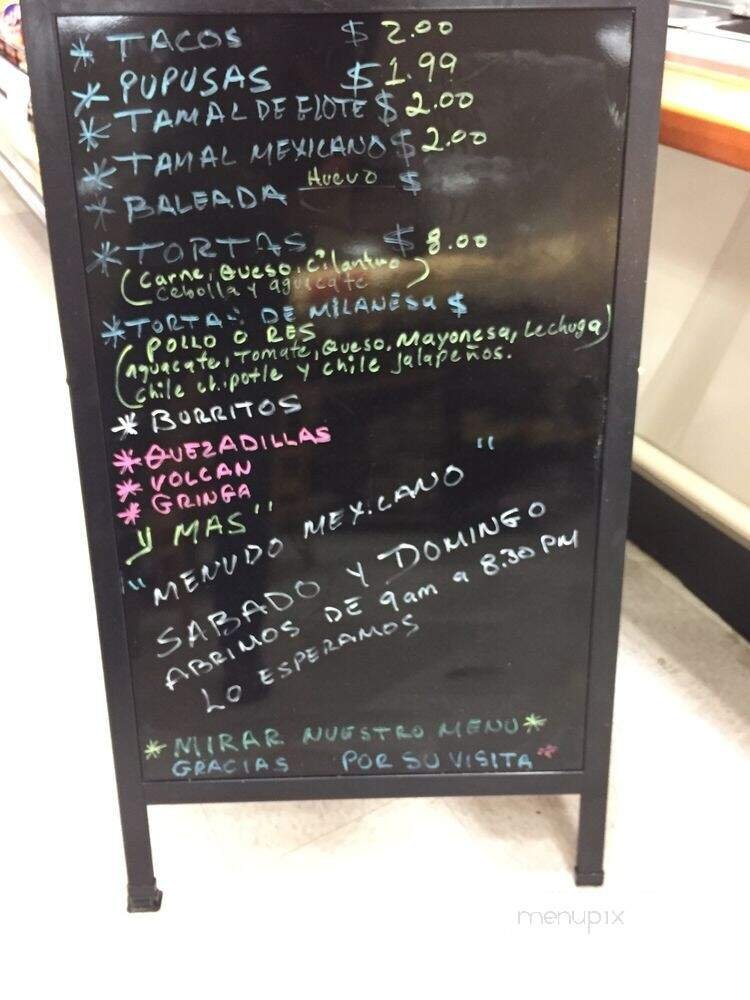 * TACOS $ 2.00
* PUPUSAS $ 1.99
* TAMAL DE ELOTE $ 2.00
* TAMAL MEXICANO $ 2.00
* BALEADA Huevo $
* TORTAS $ 8.00
(Carne, Queso, Cilantro
Cebolla y aguacate)
* TORTAS DE MILANESA $
POLLO O RES
(aguacate, Tomate, Queso, Mayonesa, Lechuga)
Chile chipotle y chile Jalapeños.
* BURRITOS
* QUEZADILLAS
* VOLCAN
* GRINGA
Y MAS"
"MENUDO MEXICANO"
SABADO Y DOMINGO
ABRIMOS DE 9am a 8.30 PM
LO ESPERAMOS
* MIRAR NUESTRO MENU *
GRACIAS POR SU VISITA *
menupix